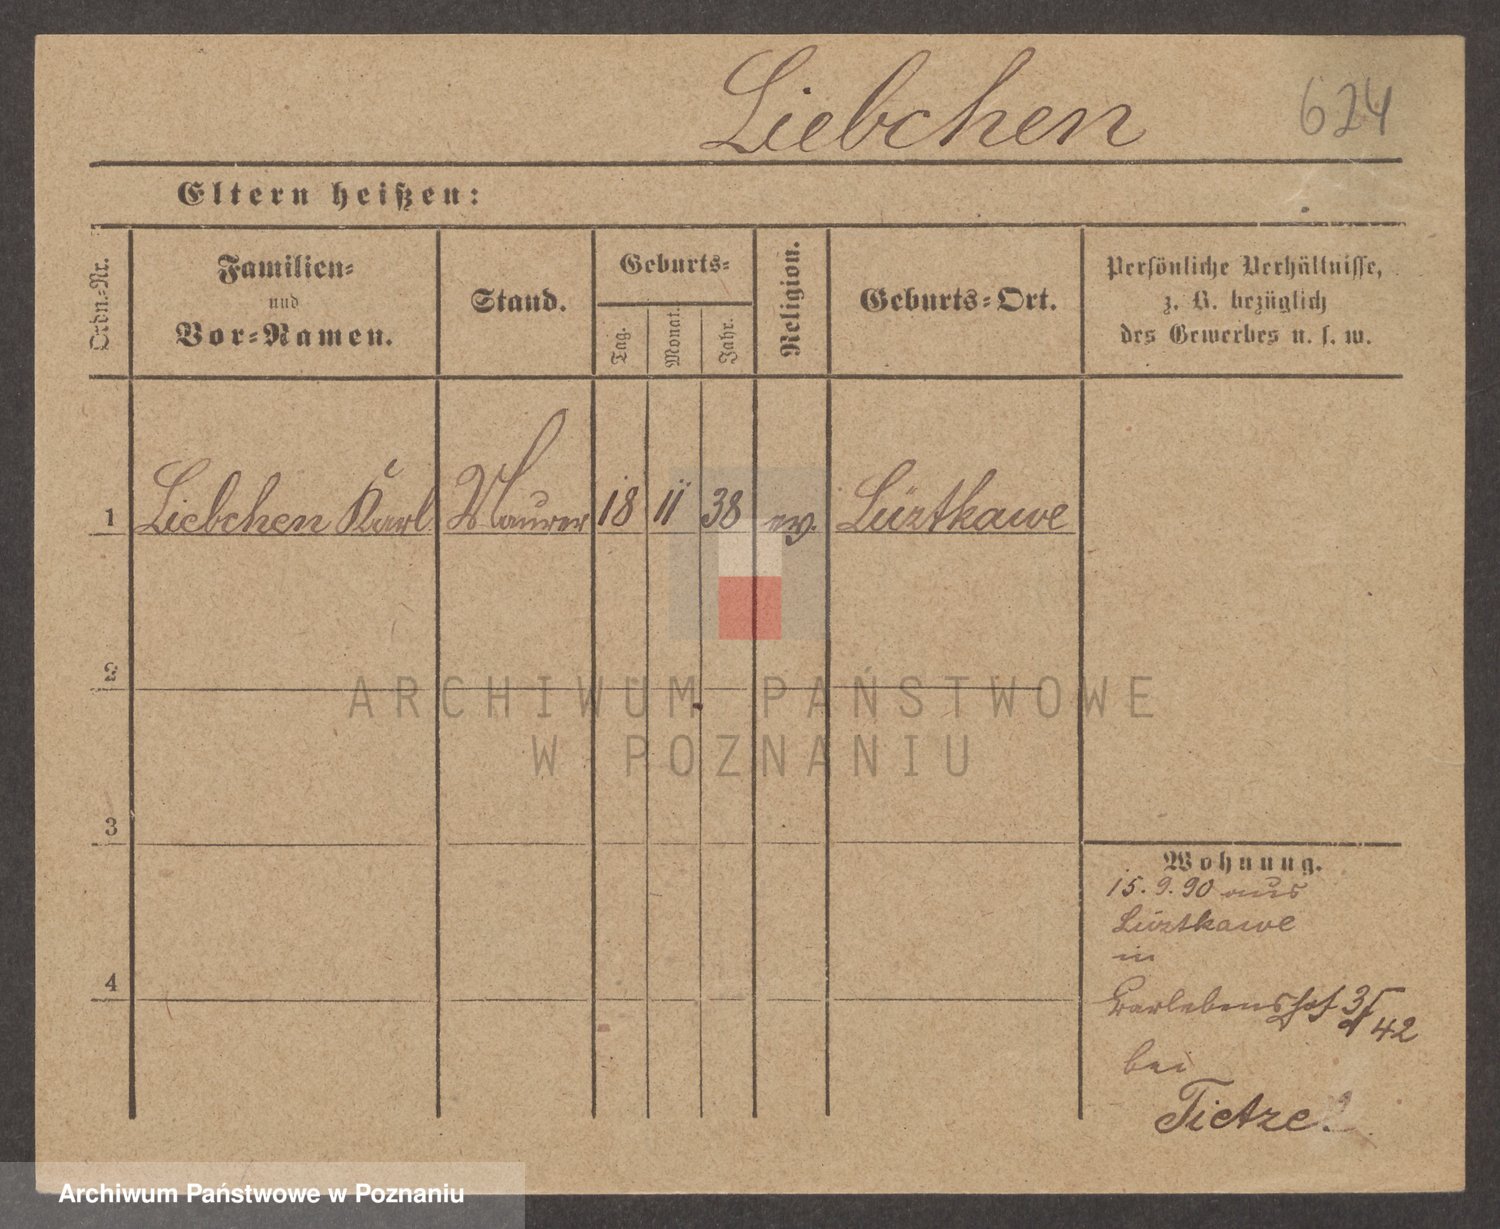 Liebchen 624
Eltern heißen:
Ordn.-Nr.
Familien-
und
Vor-Namen.
Stand.
Geburts-
Tag.
Monat.
Jahr.
Religion.
Geburts-Ort.
Persönliche Verhältnisse,
z. B. bezüglich
des Gewerbes u. s. w.
1 Liebchen Karl Maurer 18 11 38 ev. Lüztkawe
2
ARCHIWUM PAŃSTWOWE
W POZNANIU
3
Wohnung.
15. 9. 90 aus
Lüztkawe
in
4
42
bei
Tietze
Archiwum Państwowe w Poznaniu